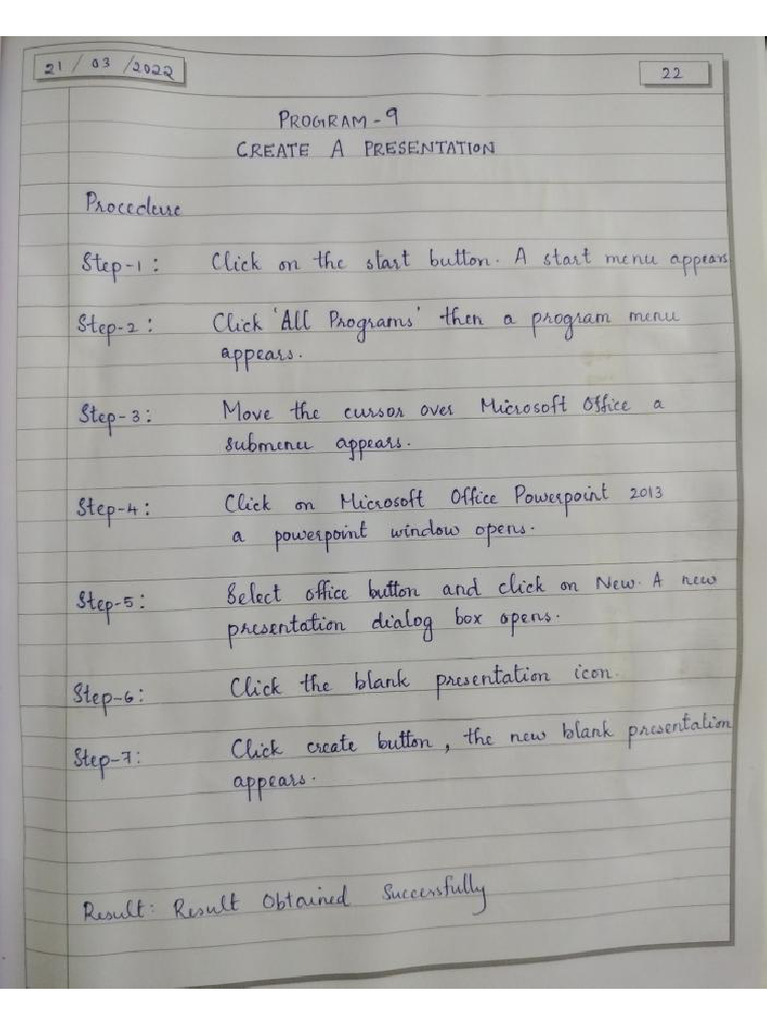 21 / 03 /2022
22
PROGRAM - 9
CREATE A PRESENTATION
Procedure
Step-1 : Click on the start button. A start menu appears
Step-2 : Click 'All Programs' then a program menu
appears.
Step-3 : Move the cursor over Microsoft Office a
submenu appears.
Step-4 : Click on Microsoft Office Powerpoint 2013
a powerpoint window opens.
Step-5 : Select office button and click on New. A new
presentation dialog box opens.
Step-6 : Click the blank presentation icon.
Step-7 : Click create button, the new blank presentation
appears.
Result : Result Obtained Successfully